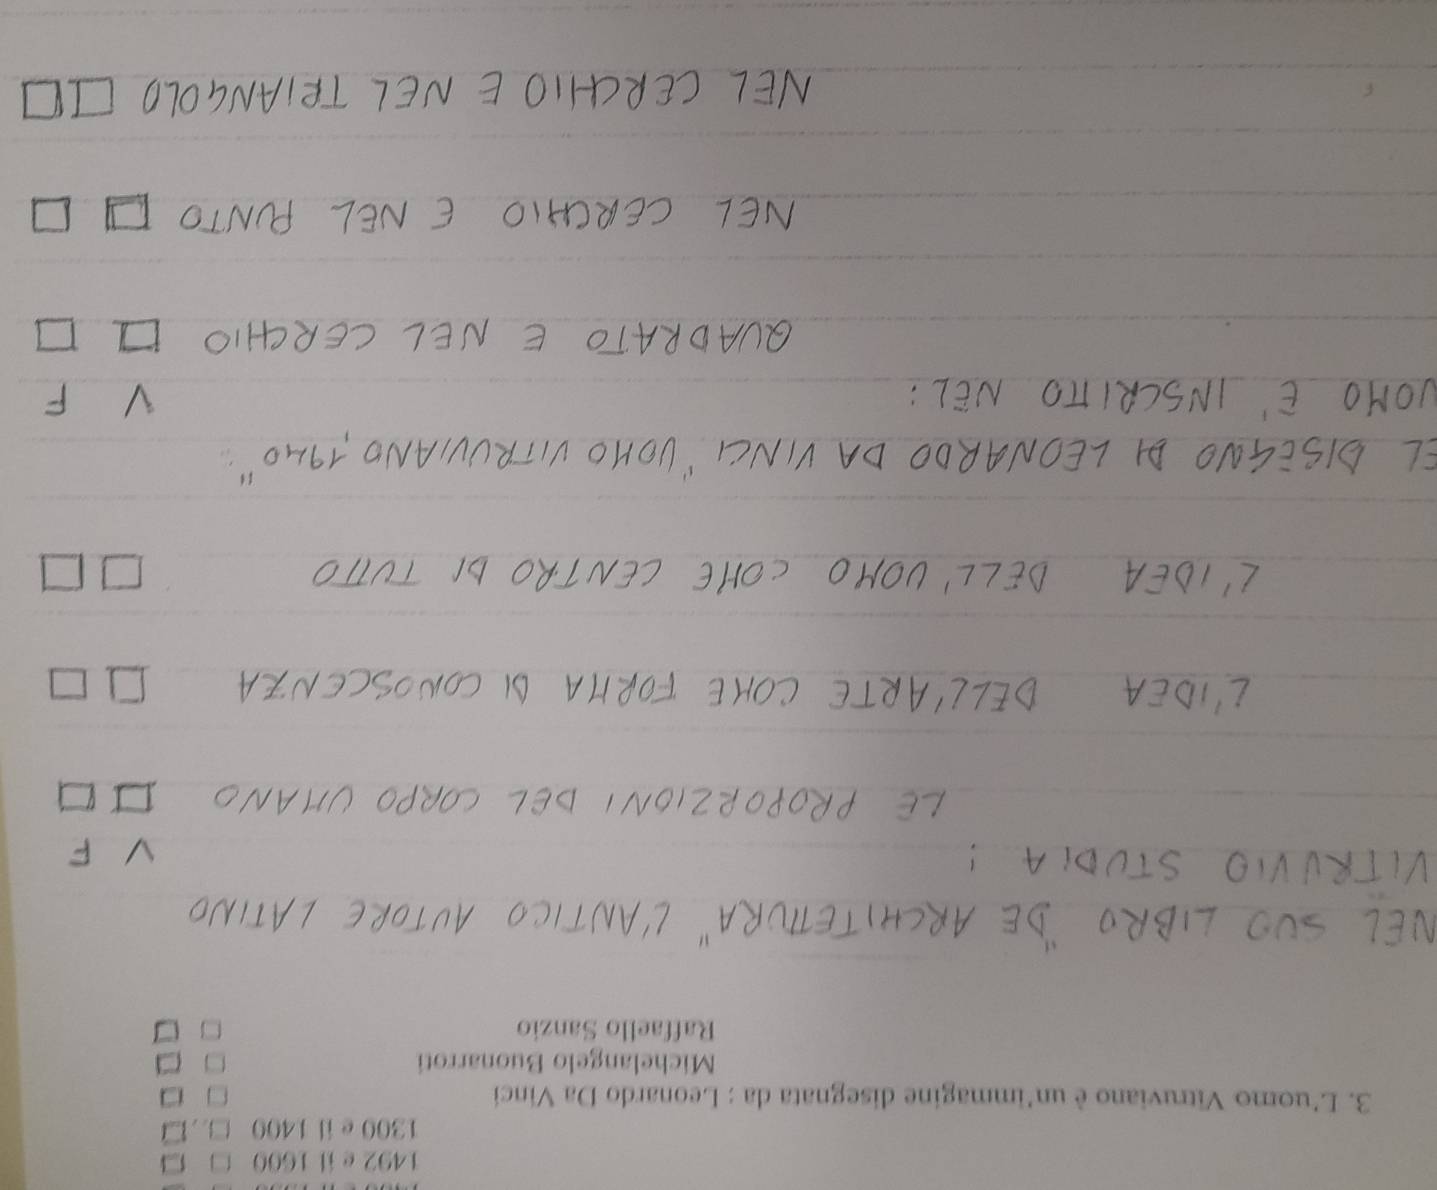 1492 e il 1600
1300 e il 1400
3. L'uomo Vitruviano è un'immagine disegnata da : Leonardo Da Vinci
Michelangelo Buonarroti
Raffaello Sanzio
NEL SUO LIBRO "DE ARCHITETTURA" L'ANTICO AUTORE LATINO
VITRUVIO STUDIA : V F
LE PROPORZIONI DEL CORPO UMANO
L'IDEA DELL'ARTE COME FORMA DI CONOSCENZA
L'IDEA DELL'UOMO COME CENTRO DI TUTTO
EL DISEGNO DI LEONARDO DA VINCI "UOMO VITRUVIANO, 1940" :
UOMO E' INSCRITTO NEL : V F
QUADRATO E NEL CERCHIO
NEL CERCHIO E NEL PUNTO
NEL CERCHIO E NEL TRIANGOLO